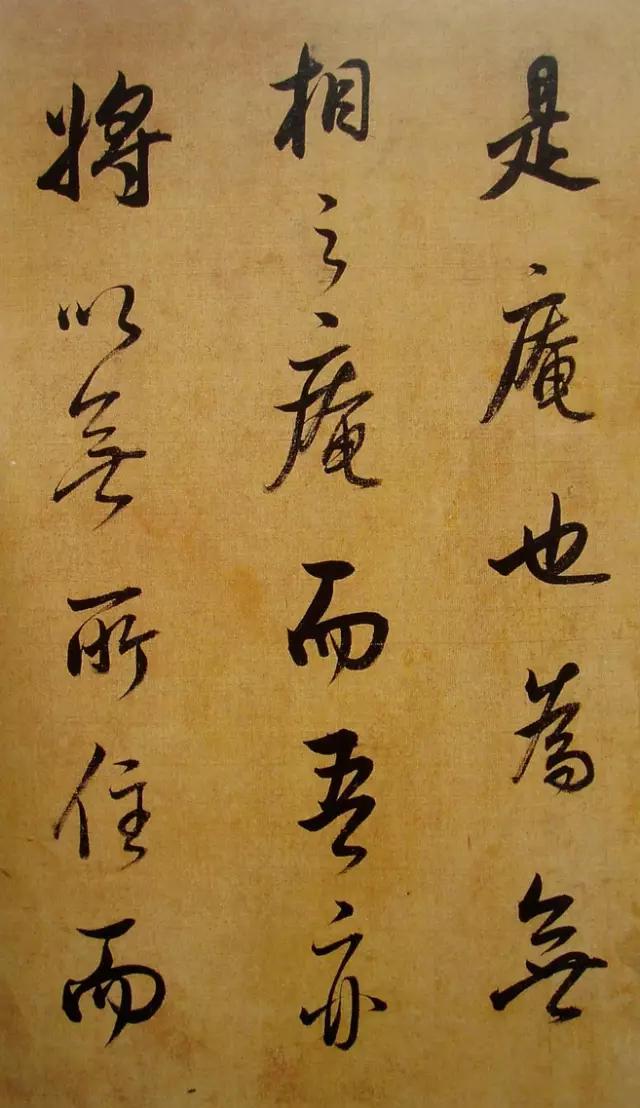 是庵也為無
相之庵而吾亦
將以無所住而